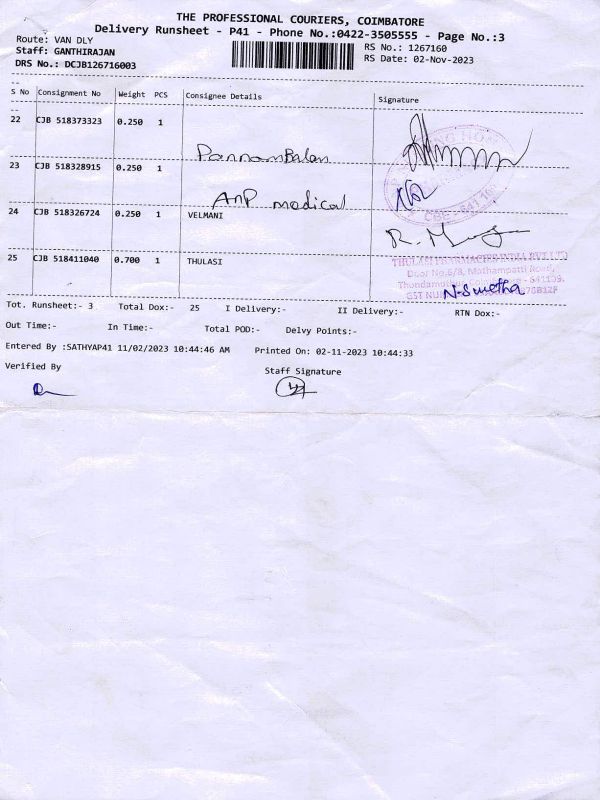 THE PROFESSIONAL COURIERS, COIMBATORE
Delivery Runsheet - P41 - Phone No.:0422-3505555 - Page No.:3
Route: VAN DLY
Staff: GANTHIRAJAN
DRS No.: DCJB126716003
RS No.: 1267160
RS Date: 02-Nov-2023
S No Consignment No Weight PCS Consignee Details Signature
22 CJB 518373323 0.250 1
23 CJB 518328915 0.250 1
AnP medical
24 CJB 518326724 0.250 1 VELMANI
25 CJB 518411040 0.700 1 THULASI
THULASI PHARMACIES INDIA PVT LTD
Door No.6/8, Mathampatti Road,
N-Swetha
Tot. Runsheet:- 3 Total Dox:- 25 I Delivery:- II Delivery:- RTN Dox:-
Out Time:- In Time:- Total POD:- Delvy Points:-
Entered By :SATHYAP41 11/02/2023 10:44:46 AM Printed On: 02-11-2023 10:44:33
Verified By Staff Signature